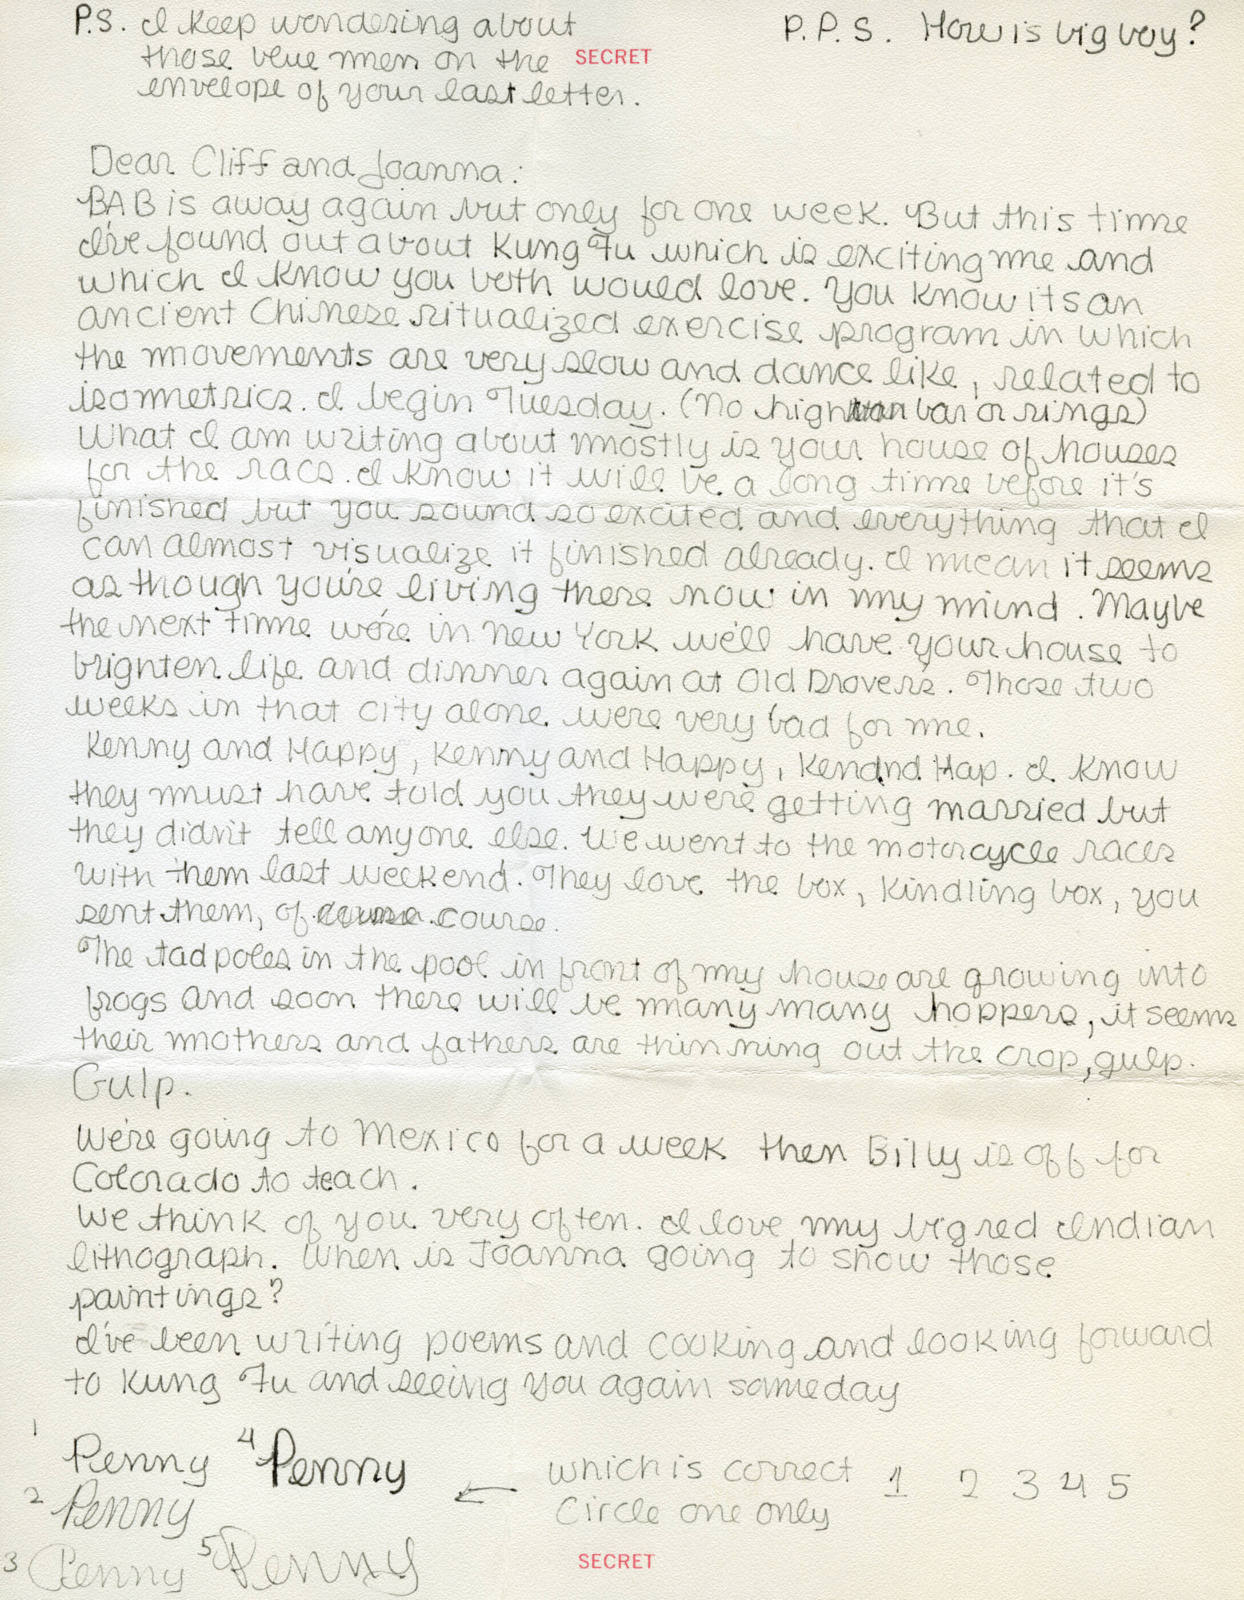 P.S. I keep wondering about
those blue men on the SECRET
envelope of your last letter.
P.P.S. How is big boy?
Dear Cliff and Joanna:
BAB is away again but only for one week. But this time
I've found out about Kung Fu which is exciting me and
which I know you both would love. You know its an
ancient Chinese ritualized exercise program in which
the movements are very slow and dance like, related to
isometrics. I begin Tuesday. (No high bar or rings)
What I am writing about mostly is your house of houses
for the racs. I know it will be a long time before it's
finished but you sound so excited and everything that I
can almost visualize it finished already. I mean it seems
as though you're living there now in my mind. Maybe
the next time we're in New York we'll have your house to
brighten life and dinner again at Old Drovers. Those two
weeks in that city alone were very bad for me.
Kenny and Happy, Kenny and Happy, Kendnd Hap. I know
they must have told you they were getting married but
they didn't tell anyone else. We went to the motorcycle races
with them last weekend. They love the box, kindling box, you
sent them, of course course.
The tadpoles in the pool in front of my house are growing into
frogs and soon there will be many many hoppers, it seems
their mothers and fathers are thinning out the crop, gulp.
Gulp.
We're going to Mexico for a week then Billy is off for
Colorado to teach.
We think of you very often. I love my big red Indian
lithograph. When is Joanna going to show those
paintings?
I've been writing poems and cooking and looking forward
to Kung Fu and seeing you again someday
1 Penny 4 Penny ← which is correct 1 2 3 4 5
2 Penny Circle one only
3 Penny 5 Penny SECRET